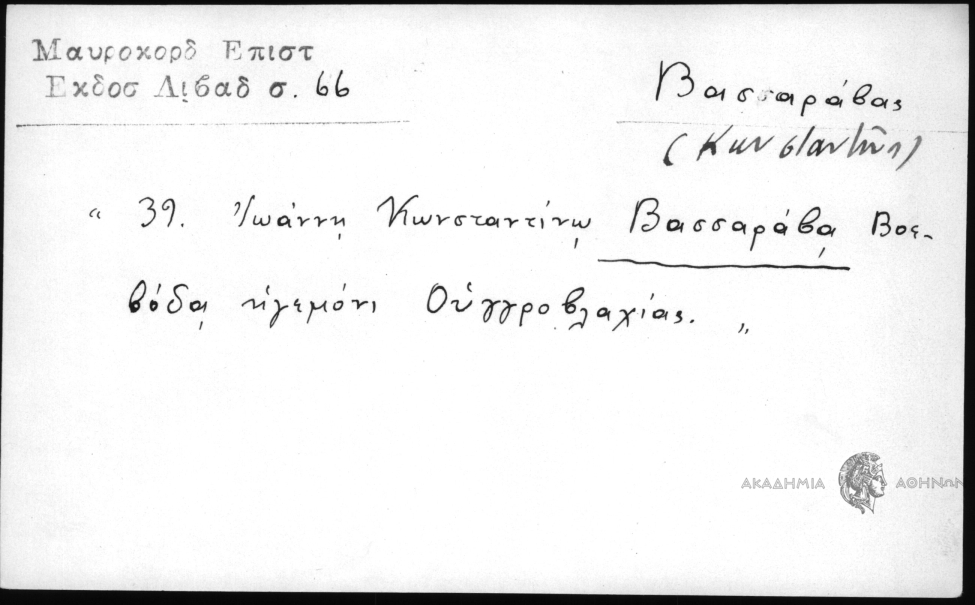 Μαυροκορδ Επιστ
Εκδοσ Λιβαδ σ. 66
Βασσαράβας
(Κωνσταντῖνο)
“ 39. Ἰωάννῃ Κωνσταντίνῳ Βασσαράβᾳ Βοε-
βόδᾳ ἡγεμόνι Οὐγγροβλαχίας. „
ΑΚΑΔΗΜΙΑ ΑΘΗΝΩΝ